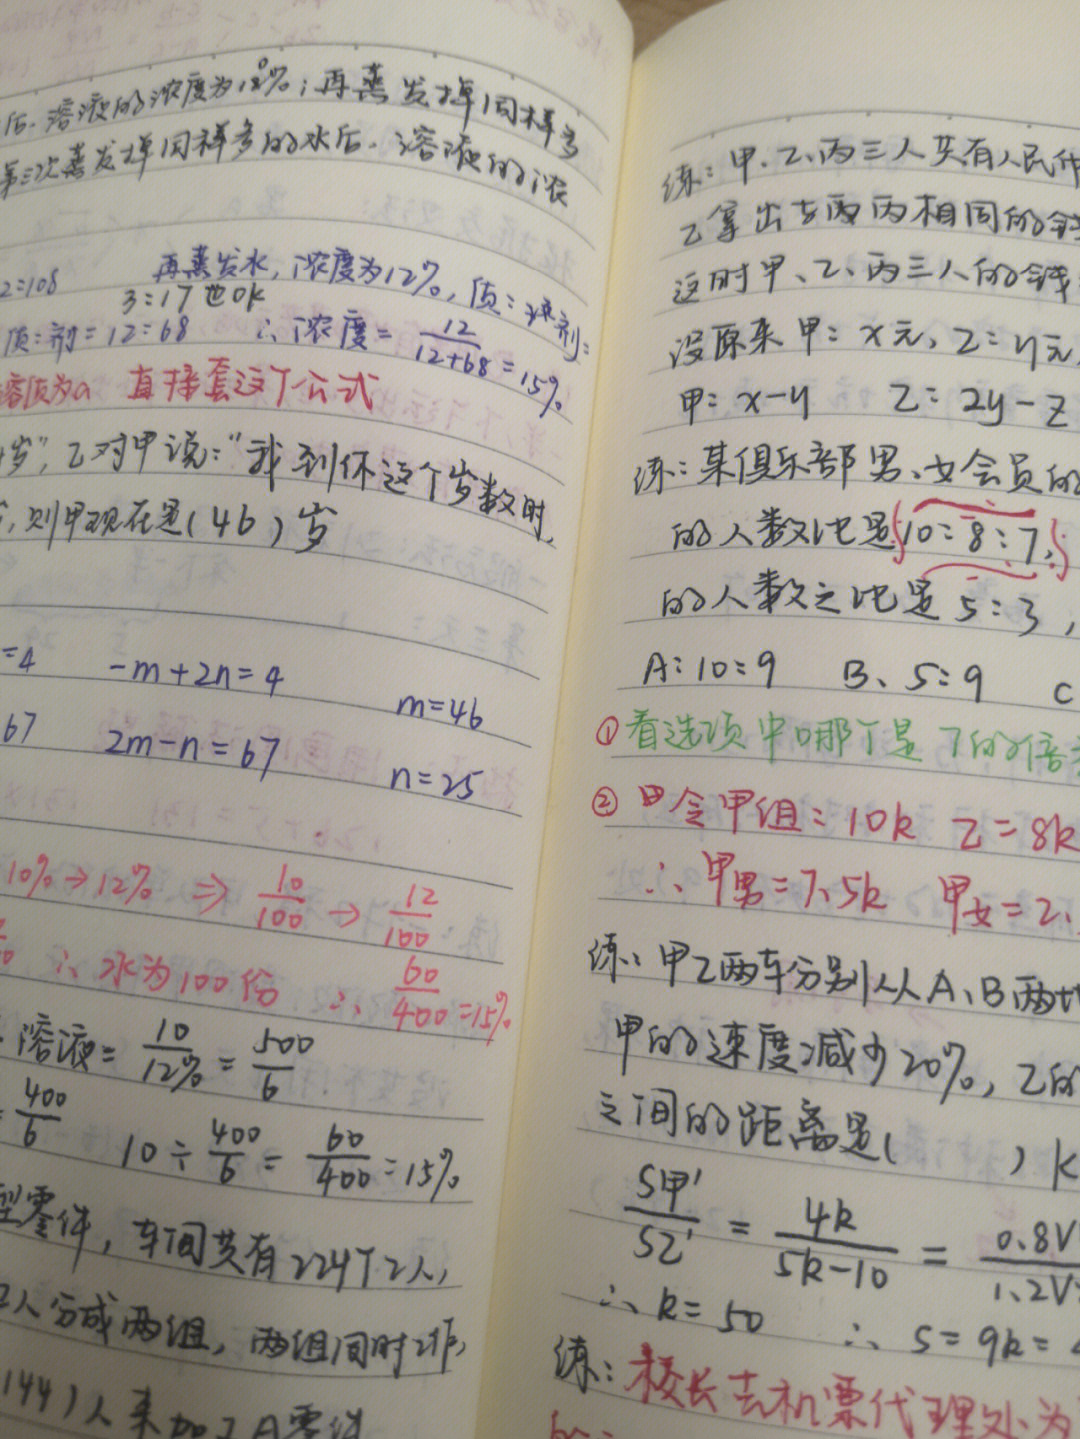 后.溶液的浓度为12%;再蒸发掉同样多
第三次蒸发掉同样多的水后.溶液的浓
再蒸发水,浓度为12%,质:溶剂=
2=108
3:17也OK
质:剂=12:68 ∴浓度=12/(12+68)=15%
溶质为a 直接套这个公式
岁",乙对甲说:"我到你这个岁数时,
,则甲现在是(46)岁
=4 -m+2n=4
m=46
67 2m-n=67
n=25
10%→12% ⇒ 10/100 → 12/100
∴水为100份 ∴ 60/400=15%
溶液=10/12%=500/6
=400/6 10÷400/6=60/400=15%
型零件,车间共有224个工人,
工人分成两组,两组同时工作,
144)人来加工A零件
练:甲、乙、丙三人共有人民
乙拿出与丙相同的
这时甲、乙、丙三人的钱
设原来甲:x元、乙=y元
甲:x-y 乙=2y-z
练:某俱乐部男、女会员的
的人数比是10:8:7,
的人数之比是5:3,
A:10:9 B、5:9 C
①看选项中哪个是7的倍
②令甲组=10k 乙=8k
∴甲男=7.5k 甲女=2.
练:甲乙两车分别从A、B两地
甲的速度减少20%,乙的
之间的距离是( )k
S甲'/S乙'=4k/(5k-10)=0.8V/1.2V
∴k=50 ∴s=9k=
练:校长去机票代理处为